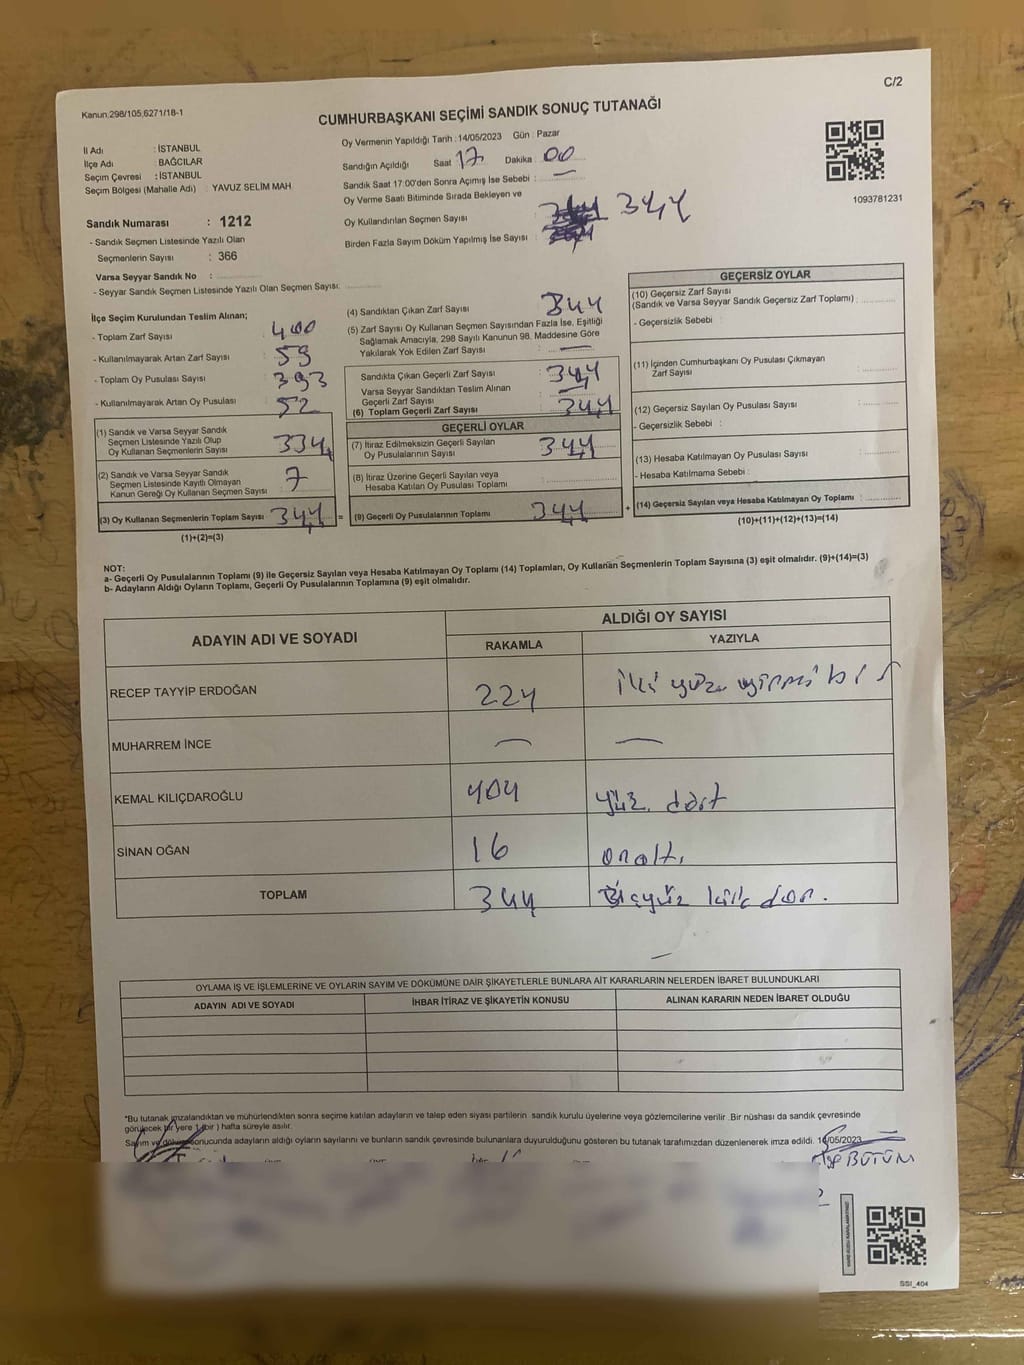 C/2
Kanun:298/105;6271/18-1
CUMHURBAŞKANI SEÇİMİ SANDIK SONUÇ TUTANAĞI
İl Adı : İSTANBUL
İlçe Adı : BAĞCILAR
Seçim Çevresi : İSTANBUL
Seçim Bölgesi (Mahalle Adı) : YAVUZ SELİM MAH
Oy Vermenin Yapıldığı Tarih : 14/05/2023 Gün : Pazar
Sandığın Açıldığı Saat 17 Dakika 00
Sandık Saat 17:00'den Sonra Açımış İse Sebebi : —
Oy Verme Saati Bitiminde Sırada Bekleyen ve
Oy Kullandırılan Seçmen Sayısı 344
Birden Fazla Sayım Döküm Yapılmış İse Sayısı :
1093781231
Sandık Numarası : 1212
- Sandık Seçmen Listesinde Yazılı Olan
Seçmenlerin Sayısı : 366
Varsa Seyyar Sandık No :
- Seyyar Sandık Seçmen Listesinde Yazılı Olan Seçmen Sayısı:
İlçe Seçim Kurulundan Teslim Alınan;
- Toplam Zarf Sayısı : 400
- Kullanılmayarak Artan Zarf Sayısı : 59
- Toplam Oy Pusulası Sayısı : 393
- Kullanılmayarak Artan Oy Pusulası : 52
(1) Sandık ve Varsa Seyyar Sandık
Seçmen Listesinde Yazılı Olup
Oy Kullanan Seçmenlerin Sayısı 334
(2) Sandık ve Varsa Seyyar Sandık
Seçmen Listesinde Kayıtlı Olmayan
Kanun Gereği Oy Kullanan Seçmen Sayısı 7
(3) Oy Kullanan Seçmenlerin Toplam Sayısı 344 =
(1)+(2)=(3)
(4) Sandıktan Çıkan Zarf Sayısı 344
(5) Zarf Sayısı Oy Kullanan Seçmen Sayısından Fazla İse, Eşitliği
Sağlamak Amacıyla, 298 Sayılı Kanunun 98. Maddesine Göre
Yakılarak Yok Edilen Zarf Sayısı : —
Sandıkta Çıkan Geçerli Zarf Sayısı : 344
Varsa Seyyar Sandıktan Teslim Alınan
Geçerli Zarf Sayısı : —
(6) Toplam Geçerli Zarf Sayısı 344
GEÇERLİ OYLAR
(7) İtiraz Edilmeksizin Geçerli Sayılan
Oy Pusulalarının Sayısı 344
(8) İtiraz Üzerine Geçerli Sayılan veya
Hesaba Katılan Oy Pusulası Toplamı :
(9) Geçerli Oy Pusulalarının Toplamı 344 +
GEÇERSİZ OYLAR
(10) Geçersiz Zarf Sayısı
(Sandık ve Varsa Seyyar Sandık Geçersiz Zarf Toplamı) :
- Geçersizlik Sebebi :
(11) İçinden Cumhurbaşkanı Oy Pusulası Çıkmayan
Zarf Sayısı :
(12) Geçersiz Sayılan Oy Pusulası Sayısı :
- Geçersizlik Sebebi :
(13) Hesaba Katılmayan Oy Pusulası Sayısı :
- Hesaba Katılmama Sebebi :
(14) Geçersiz Sayılan veya Hesaba Katılmayan Oy Toplamı :
(10)+(11)+(12)+(13)=(14)
NOT:
a- Geçerli Oy Pusulalarının Toplamı (9) ile Geçersiz Sayılan veya Hesaba Katılmayan Oy Toplamı (14) Toplamları, Oy Kullanan Seçmenlerin Toplam Sayısına (3) eşit olmalıdır. (9)+(14)=(3)
b- Adayların Aldığı Oyların Toplamı, Geçerli Oy Pusulalarının Toplamına (9) eşit olmalıdır.
ADAYIN ADI VE SOYADI ALDIĞI OY SAYISI
RAKAMLA YAZIYLA
RECEP TAYYİP ERDOĞAN 224 iki yüz yirmi bir
MUHARREM İNCE — —
KEMAL KILIÇDAROĞLU 404 yüz dört
SİNAN OĞAN 16 onaltı
TOPLAM 344
OYLAMA İŞ VE İŞLEMLERİNE VE OYLARIN SAYIM VE DÖKÜMÜNE DAİR ŞİKAYETLERLE BUNLARA AİT KARARLARIN NELERDEN İBARET BULUNDUKLARI
ADAYIN ADI VE SOYADI İHBAR İTİRAZ VE ŞİKAYETİN KONUSU ALINAN KARARIN NEDEN İBARET OLDUĞU
*Bu tutanak imzalandıktan ve mühürlendikten sonra seçime katılan adayların ve talep eden siyasi partilerin sandık kurulu üyelerine veya gözlemcilerine verilir .Bir nüshası da sandık çevresinde
görülecek bir yere 1 (bir ) hafta süreyle asılır.
Sayım ve döküm sonucunda adayların aldığı oyların sayılarını ve bunların sandık çevresinde bulunanlara duyurulduğunu gösteren bu tutanak tarafımızdan düzenlenerek imza edildi. 14/05/2023
BÜTÜN
SSI_404